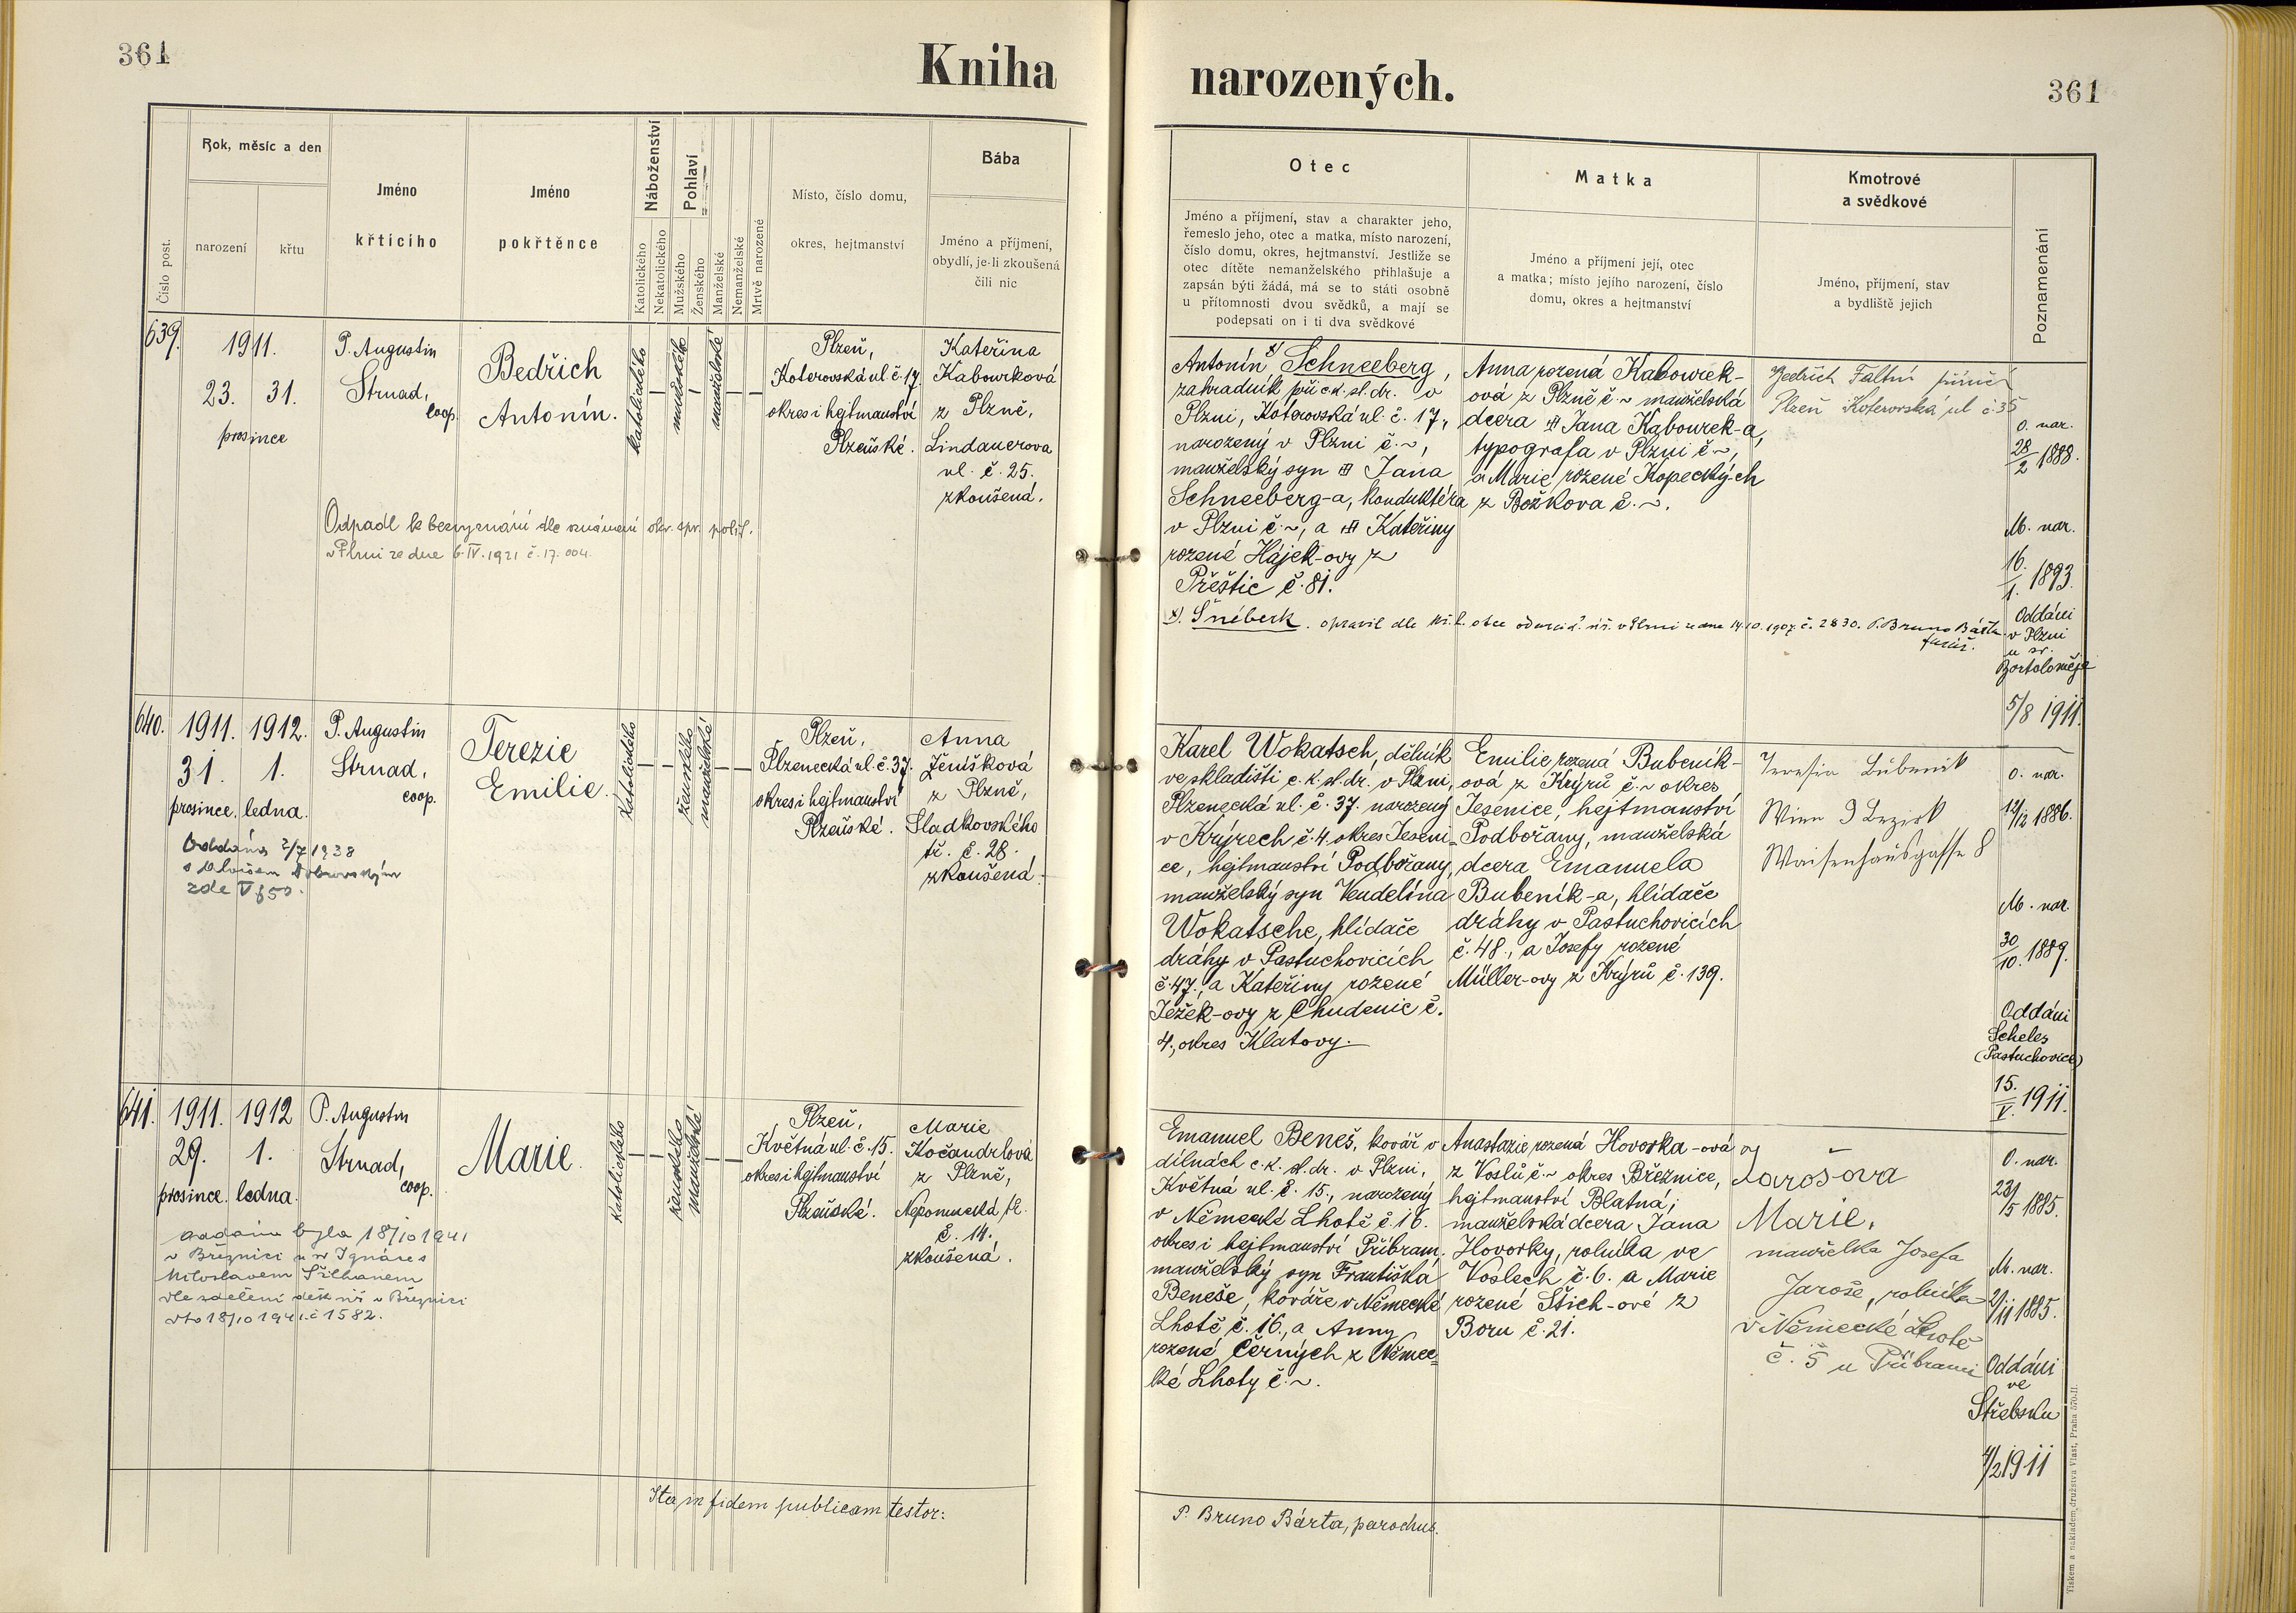 361
Kniha
narozených.
361
Číslo post.
Rok, měsíc a den
narození
křtu
Jméno
křticího
Jméno
pokřtěnce
Náboženství
Katolického
Nekatolického
Pohlaví
Mužského
Ženského
Manželské
Nemanželské
Mrtvě narozené
Místo, číslo domu,
okres, hejtmanství
Bába
Jméno a příjmení,
obydlí, je-li zkoušená
čili nic
Otec
Jméno a příjmení, stav a charakter jeho,
řemeslo jeho, otec a matka, místo narození,
číslo domu, okres, hejtmanství. Jestliže se
otec dítěte nemanželského přihlašuje a
zapsán býti žádá, má se to státi osobně
u přítomnosti dvou svědků, a mají se
podepsati on i ti dva svědkové
Matka
Jméno a příjmení její, otec
a matka; místo jejího narození, číslo
domu, okres a hejtmanství
Kmotrové
a svědkové
Jméno, příjmení, stav
a bydliště jejich
Poznamenání
639.
1911.
23. 31.
prosince
P. Augustin
Strnad,
coop.
Bedřich
Antonín.
katolického
mužského
manželské
Plzeň,
Koterovská ul. č. 17.
okres i hejtmanství
Plzeňské.
Kateřina
Kabourková
z Plzně,
Lindauerova
ul. č. 25.
zkoušená.
Odpadl k bezvyznání dle oznámení okr. spr. polit.
v Plzni ze dne 6.IV.1921 č. 17.004.
Antonín x) Schneeberg,
zahradník při c.k. st. dr. v
Plzni, Koterovská ul. č. 17,
narozený v Plzni č. ~,
manželský syn Jana
Schneeberg-a, konduktéra
v Plzni č. ~, a Kateřiny
rozené Hájek-ovy z
Přeštic č. 81.
x). Šnéberk. opravil dle kř. l. otce od arcid. úř. v Plzni ze dne 14.10.1907. č. 2830. P. Bruno Bárta
farář.
Anna rozená Kabourek-
ová z Plzně č. ~ manželská
dcera Jana Kabourek-a,
typografa v Plzni č. ~,
a Marie rozené Kopeckých
z Božkova č. ~.
Bedřich Faltin
Plzeň Koterovská ul č 35
O. nar.
28/2 1888.
M. nar.
16./1. 1893.
Oddáni
v Plzni
u sv.
Bartoloměje
5/8 1911.
640.
1911. 1912.
31. 1.
prosince. ledna.
P. Augustin
Strnad,
coop.
Terezie
Emilie.
katolického
ženského
manželské
Plzeň,
Plzenecká ul. č. 37.
okres i hejtmanství
Plzeňské.
Anna
Ženíšková
z Plzně,
Sladkovského
tř. č. 28.
zkoušená.
Oddána 2/7 1938
s Aloisem Dobrovským
zde V f 50.
Karel Wokatsch, dělník
ve skladišti c. k. st. dr. v Plzni,
Plzenecká ul. č. 37. narozený
v Krýrech č. 4. okres Jeseni-
ce, hejtmanství Podbořany,
manželský syn Vendelína
Wokatsche, hlídače
dráhy v Pastuchovicích
č. 47., a Kateřiny rozené
Ježek-ovy z Chudenic č.
4., okres Klatovy.
Emilie rozená Bubeník-
ová z Krýrů č. ~ okres
Jesenice, hejtmanství
Podbořany, manželská
dcera Emanuela
Bubeník-a, hlídače
dráhy v Pastuchovicích
č. 48., a Josefy rozené
Müller-ovy z Krýrů č. 139.
Teresia Bubenik
Wien 9 Bezirk
Waisenhausgasse 8
O. nar.
12/12 1886.
M. nar.
30/10. 1889.
Oddáni
Scheles
(Pastuchovice)
15./V. 1911.
641.
1911. 1912
29. 1.
prosince. ledna.
P. Augustin
Strnad,
coop.
Marie.
katolického
ženského
manželské
Plzeň,
Květná ul. č. 15.
okres i hejtmanství
Plzeňské.
Marie
Kočandrlová
z Plzně,
Nepomucká tř.
č. 14.
zkoušená.
oddána byla 18/10 1941
v Březnici u sv Ignáce s
Miloslavem Šilhanem
dle sdělení děk. úř. v Březnici
dto 18/10 1941. č 1582.
Emanuel Beneš, kovář v
dílnách c. k. st. dr. v Plzni,
Květná ul. č. 15., narozený
v Německé Lhotě č. 16.
okres i hejtmanství Příbram.
manželský syn Františka
Beneše, kováře v Německé
Lhotě č. 16., a Anny
rozené Černých z Němec-
ké Lhoty č. ~.
Anastazie rozená Hovorka-ová
z Voslů č. ~ okres Březnice,
hejtmanství Blatná;
manželská dcera Jana
Hovorky, rolníka ve
Voslech č. 6. a Marie
rozené Štich-ové z
Boru č. 21.
Jarošova
Marie,
manželka Josefa
Jaroše, rolníka
v Německé Lhotě
č. 5 u Příbrami
O. nar.
23/5 1885.
M. nar.
2/11 1885.
Oddáni
ve
Střebsku
4/2 1911
Ita in fidem publicam testor:
P. Bruno Bárta, parochus.
Tiskem a nákladem družstva Vlast, Praha 570-II.